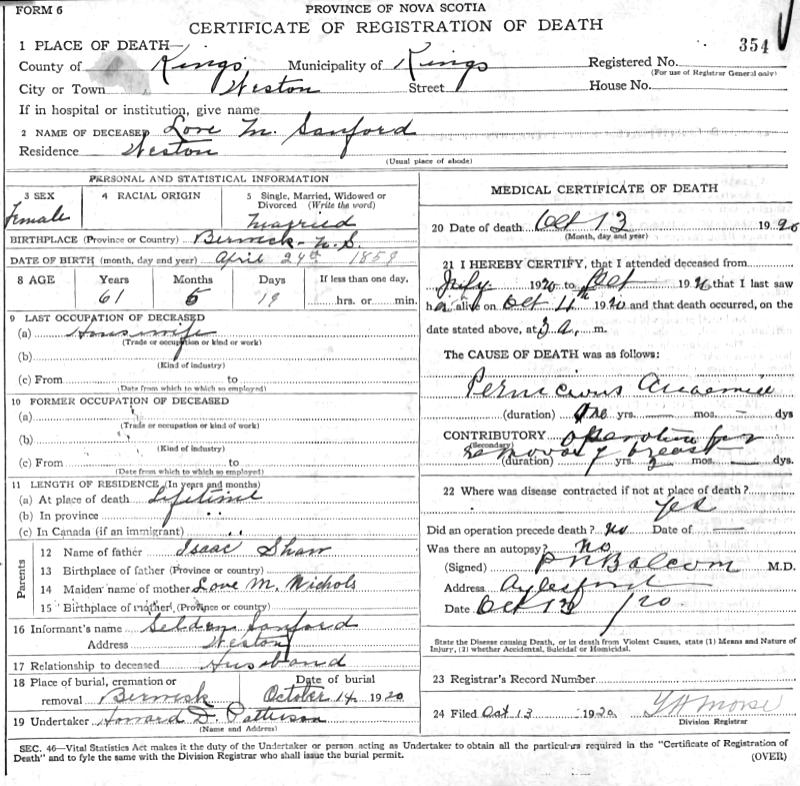 FORM 6
PROVINCE OF NOVA SCOTIA
CERTIFICATE OF REGISTRATION OF DEATH
354
1 PLACE OF DEATH—
County of Kings Municipality of Kings Registered No.
(For use of Registrar General only)
City or Town Weston Street House No.
If in hospital or institution, give name
2 NAME OF DECEASED Love M. Sanford
Residence Weston
(Usual place of abode)
PERSONAL AND STATISTICAL INFORMATION
3 SEX 4 RACIAL ORIGIN 5 Single, Married, Widowed or Divorced (Write the word)
Female Married
BIRTHPLACE (Province or Country) Berwick - N.S.
DATE OF BIRTH (month, day and year) April 24th 1859
8 AGE Years Months Days If less than one day,
61 5 19 hrs. or min.
9 LAST OCCUPATION OF DECEASED
(a) Housewife
(Trade or occupation or kind or work)
(b)
(Kind of industry)
(c) From to
(Date from which to which so employed)
10 FORMER OCCUPATION OF DECEASED
(a)
(Trade or occupation or kind of work)
(b)
(Kind of industry)
(c) From to
(Date from which to which so employed)
11 LENGTH OF RESIDENCE (In years and months)
(a) At place of death Lifetime
(b) In province " "
(c) In Canada (if an immigrant) " "
Parents
12 Name of father Isaac Shaw
13 Birthplace of father (Province or country)
14 Maiden name of mother Love M. Nichols
15 Birthplace of mother (Province or country)
16 Informant's name Seldon Sanford
Address Weston
17 Relationship to deceased Husband
18 Place of burial, cremation or removal Berwick Date of burial October 14 1920
19 Undertaker Howard D. Patterson
(Name and Address)
MEDICAL CERTIFICATE OF DEATH
20 Date of death Oct 13 1920
(Month, day and year)
21 I HEREBY CERTIFY, that I attended deceased from
July 1920 to Oct 1920 that I last saw
h alive on Oct 4th 1920 and that death occurred, on the
date stated above, at 3 a. m.
The CAUSE OF DEATH was as follows:
Pernicious Anaemia
(duration) One yrs. — mos. — dys
CONTRIBUTORY Operation for
(Secondary) removal of breast
(duration) yrs. mos. — dys.
22 Where was disease contracted if not at place of death?
Yes
Did an operation precede death? No Date of —
Was there an autopsy? No
(Signed) P N Balcom M.D.
Address Aylesford
Date Oct 13 /20
State the Disease causing Death, or in death from Violent Causes, state (1) Means and Nature of
Injury, (2) whether Accidental, Suicidal or Homicidal.
23 Registrar's Record Number
24 Filed Oct 13 1920 Morse
Division Registrar
SEC. 46—Vital Statistics Act makes it the duty of the Undertaker or person acting as Undertaker to obtain all the particulars required in the "Certificate of Registration of
Death" and to fyle the same with the Division Registrar who shall issue the burial permit. (OVER)